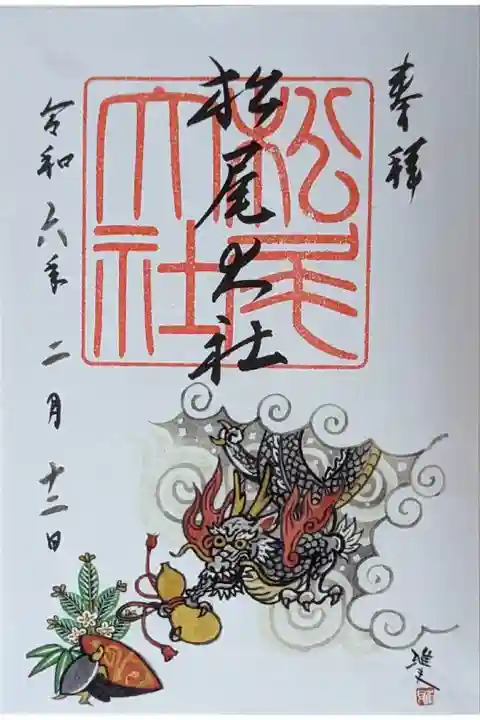 奉拝
松尾大社
松尾大社
令和六年二月十二日